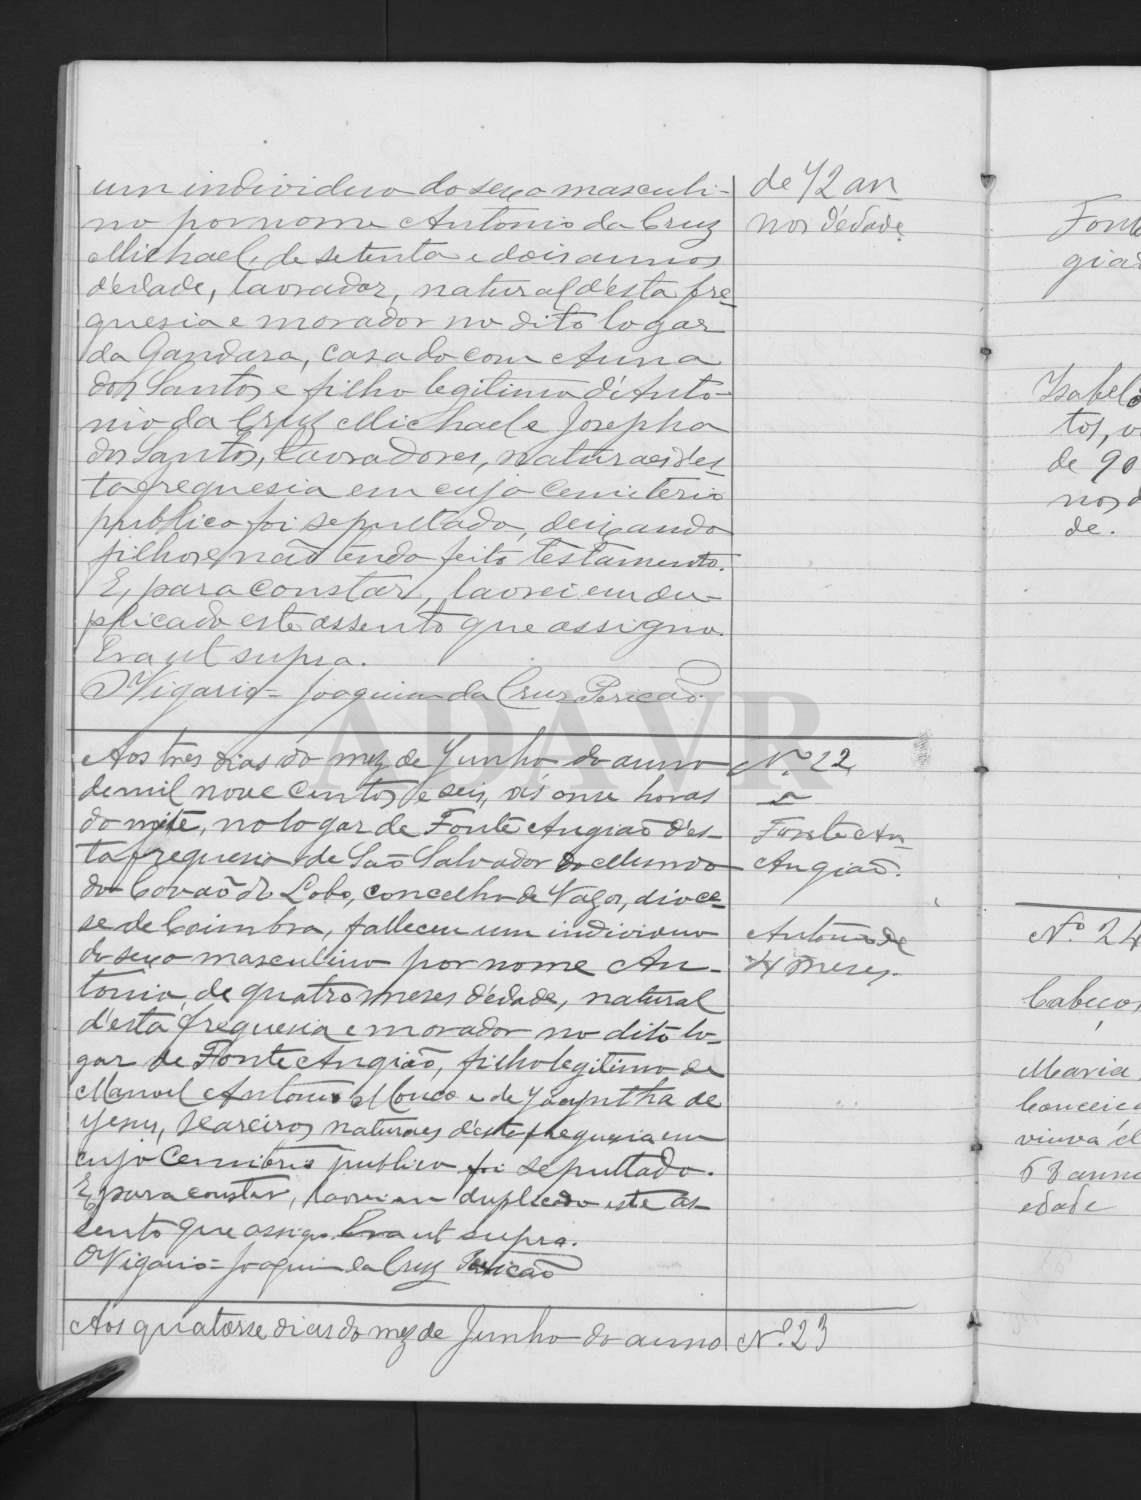 um individuo do sexo masculi-
no por nome Antonio da Cruz
Michael, de setenta e dois annos
d'edade, lavrador, natural d'esta fre-
guesia e morador no dito logar
da Gandara, casado com Anna
dos Santos e filho legitimo d'Anto-
nio da Cruz Michael e Josepha
dos Santos, lavradores, naturaes d'es-
ta freguesia em cujo cemiterio
publico foi sepultado, deixando
filhos e não tendo feito testamento.
E, para constar, lavrei em du-
plicado este assento que assigno.
Era ut supra.
O Vigario = Joaquim da Cruz Pericão
de 72 an
nos d'edade.
Aos tres dias do mez de Junho do anno
de mil nove centos e seis, ás onze horas
da noite, no logar de Fonte Angião d'es-
ta freguesia de São Salvador do Mundo
do Covão do Lobo, concelho de Vagos, dioce-
se de Coimbra, falleceu um individuo
do sexo masculino por nome An-
tonio, de quatro meses d'edade, natural
d'esta freguesia e morador no dito lo-
gar de Fonte Angião, filho legitimo de
Manoel Antonio Mouco e de Jacyntha de
Jesus, seareiros naturaes d'esta freguesia em
cujo cemiterio publico foi sepultado.
E, para constar, lavrei em duplicado este as-
sento que assigno. Era ut supra.
O Vigario = Joaquim da Cruz Pericão
N.º 22
Fonte An
Angião.
Antonio de
4 meses.
Aos quatorse dias do mez de Junho do anno
N.º 23
Fonte
gião
Isabel
tos, v
de 90
nos d
de.
N.º 24
Cabeços
Maria
Conceiç
viuva d
68 anno
edade
ADAVR